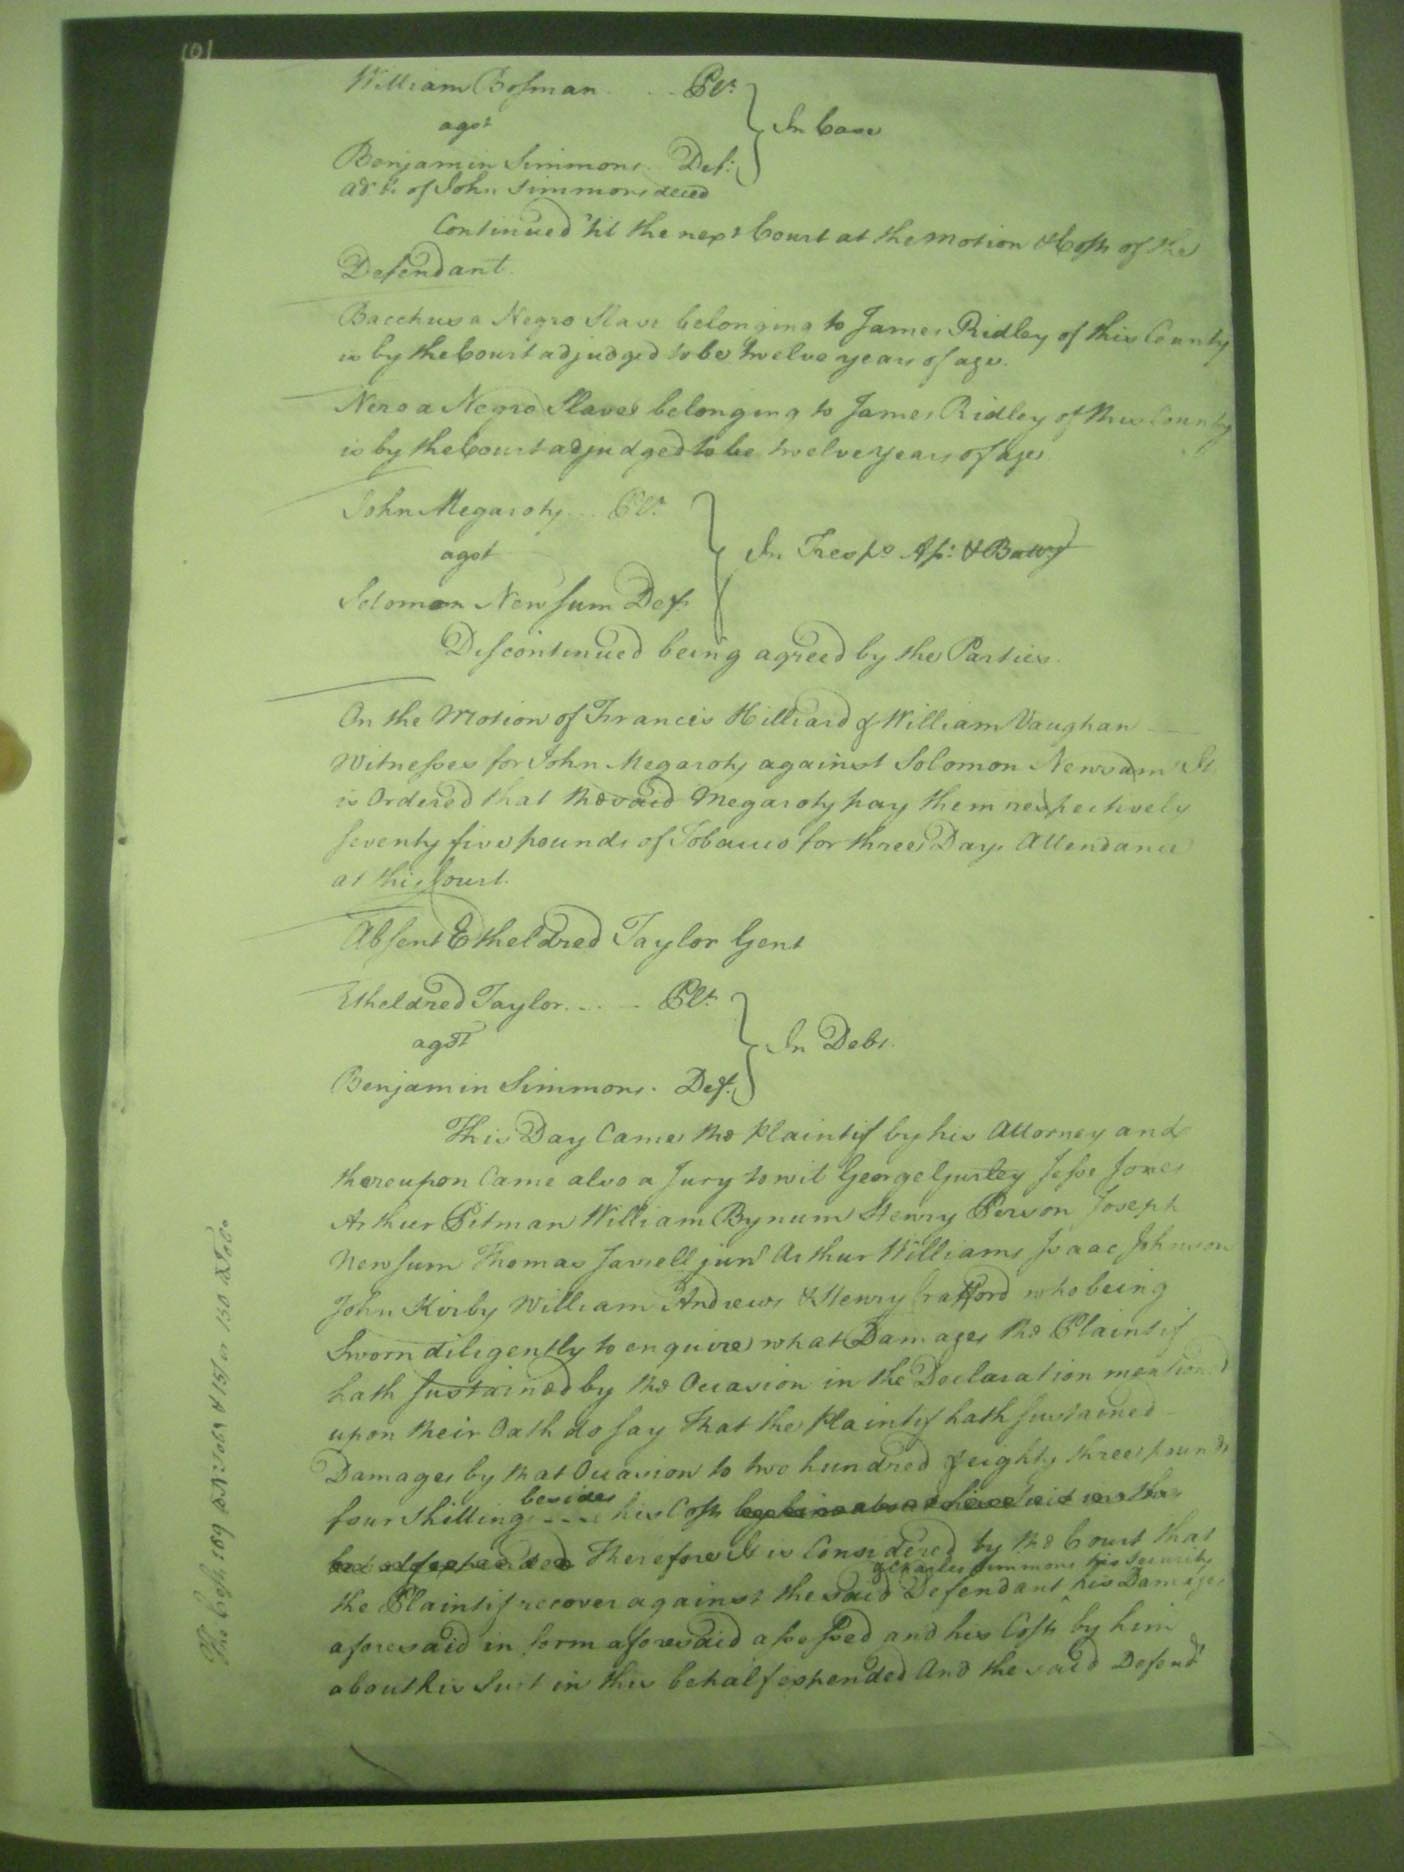 101
William Bosman . . . Plt.
agst
Benjamin Simmons. Deft.
In Case
adr. &c of John Simmons decd
Continued 'til the next Court at the motion & Costs of the
Defendant.
Bacchus a Negro Slave belonging to James Ridley of this County
is by the Court adjudged to be twelve years of age.
Nero a Negro Slave belonging to James Ridley of this County
is by the Court adjudged to be twelve years of age
John Megaroty . . . Plt.
agst
In Tresps. As: & Battry
Solomon Newsum Deft
Discontinued being agreed by the Parties.
On the Motion of Francis Hilliard & William Vaughan
Witnesses for John Megaroty against Solomon Newsam It
is Ordered that the said Megaroty pay them respectively
seventy five pounds of Tobacco for three Days Attendance
at this Court.
Absent Etheldred Taylor Gent
Etheldred Taylor . . . Plt.
agst
In Debt.
Benjamin Simmons. Deft.
This Day Came the Plaintif by his Attorney and
thereupon Came also a Jury to wit George Gurley Jesse Jones
Arthur Pitman William Bynum Henry Person Joseph
Newsum Thomas Jarrell junr Arthur Williams Isaac Johnson
John Kirby William Andrews & Henry Crafford who being
Sworn diligently to enquire what Damages the Plaintif
hath Sustained by the Occasion in the Declaration mentioned
upon their Oath do say That the Plaintif hath sustained
Damages by that Occasion to two hundred & eighty three pounds
four Shillings besides his Costs by him about his Suit in this
behalf expended Therefore It is Considered by the Court that
& Charles Simmons his security
the Plaintif recover against the said Defendant ^ his Damages
aforesaid in form aforesaid assessed and his Costs by him
about his Suit in this behalf expended And the said Defendt